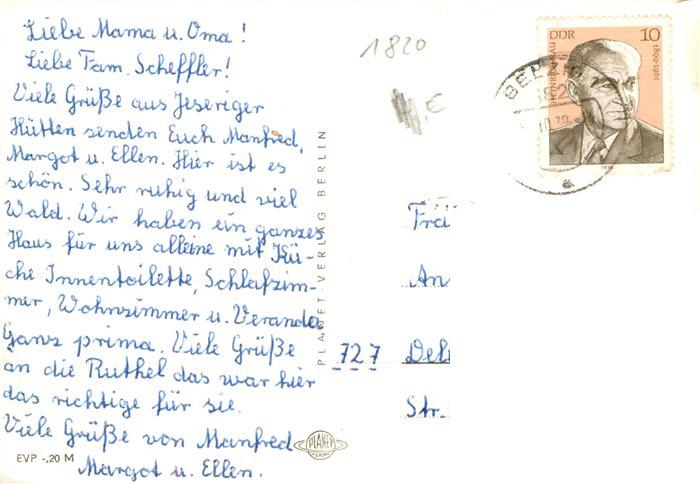 Liebe Mama u. Oma!
Liebe Fam. Scheffler!
Viele Grüße aus Jeseriger
Hütten senden Euch Manfred,
Margot u. Ellen. Hier ist es
schön. Sehr ruhig und viel
Wald. Wir haben ein ganzes
Haus für uns alleine mit Kü-
che Innentoilette, Schlafzim-
mer, Wohnzimmer u. Veranda
Ganz prima. Viele Grüße
an die Ruthel das war hier
das richtige für sie.
Viele Grüße von Manfred
Margot u. Ellen.
EVP -,20 M
PLANET-VERLAG BERLIN
PLANET
1820
€
DDR
10
1899-1961
Fra
An
727 Del
Str.